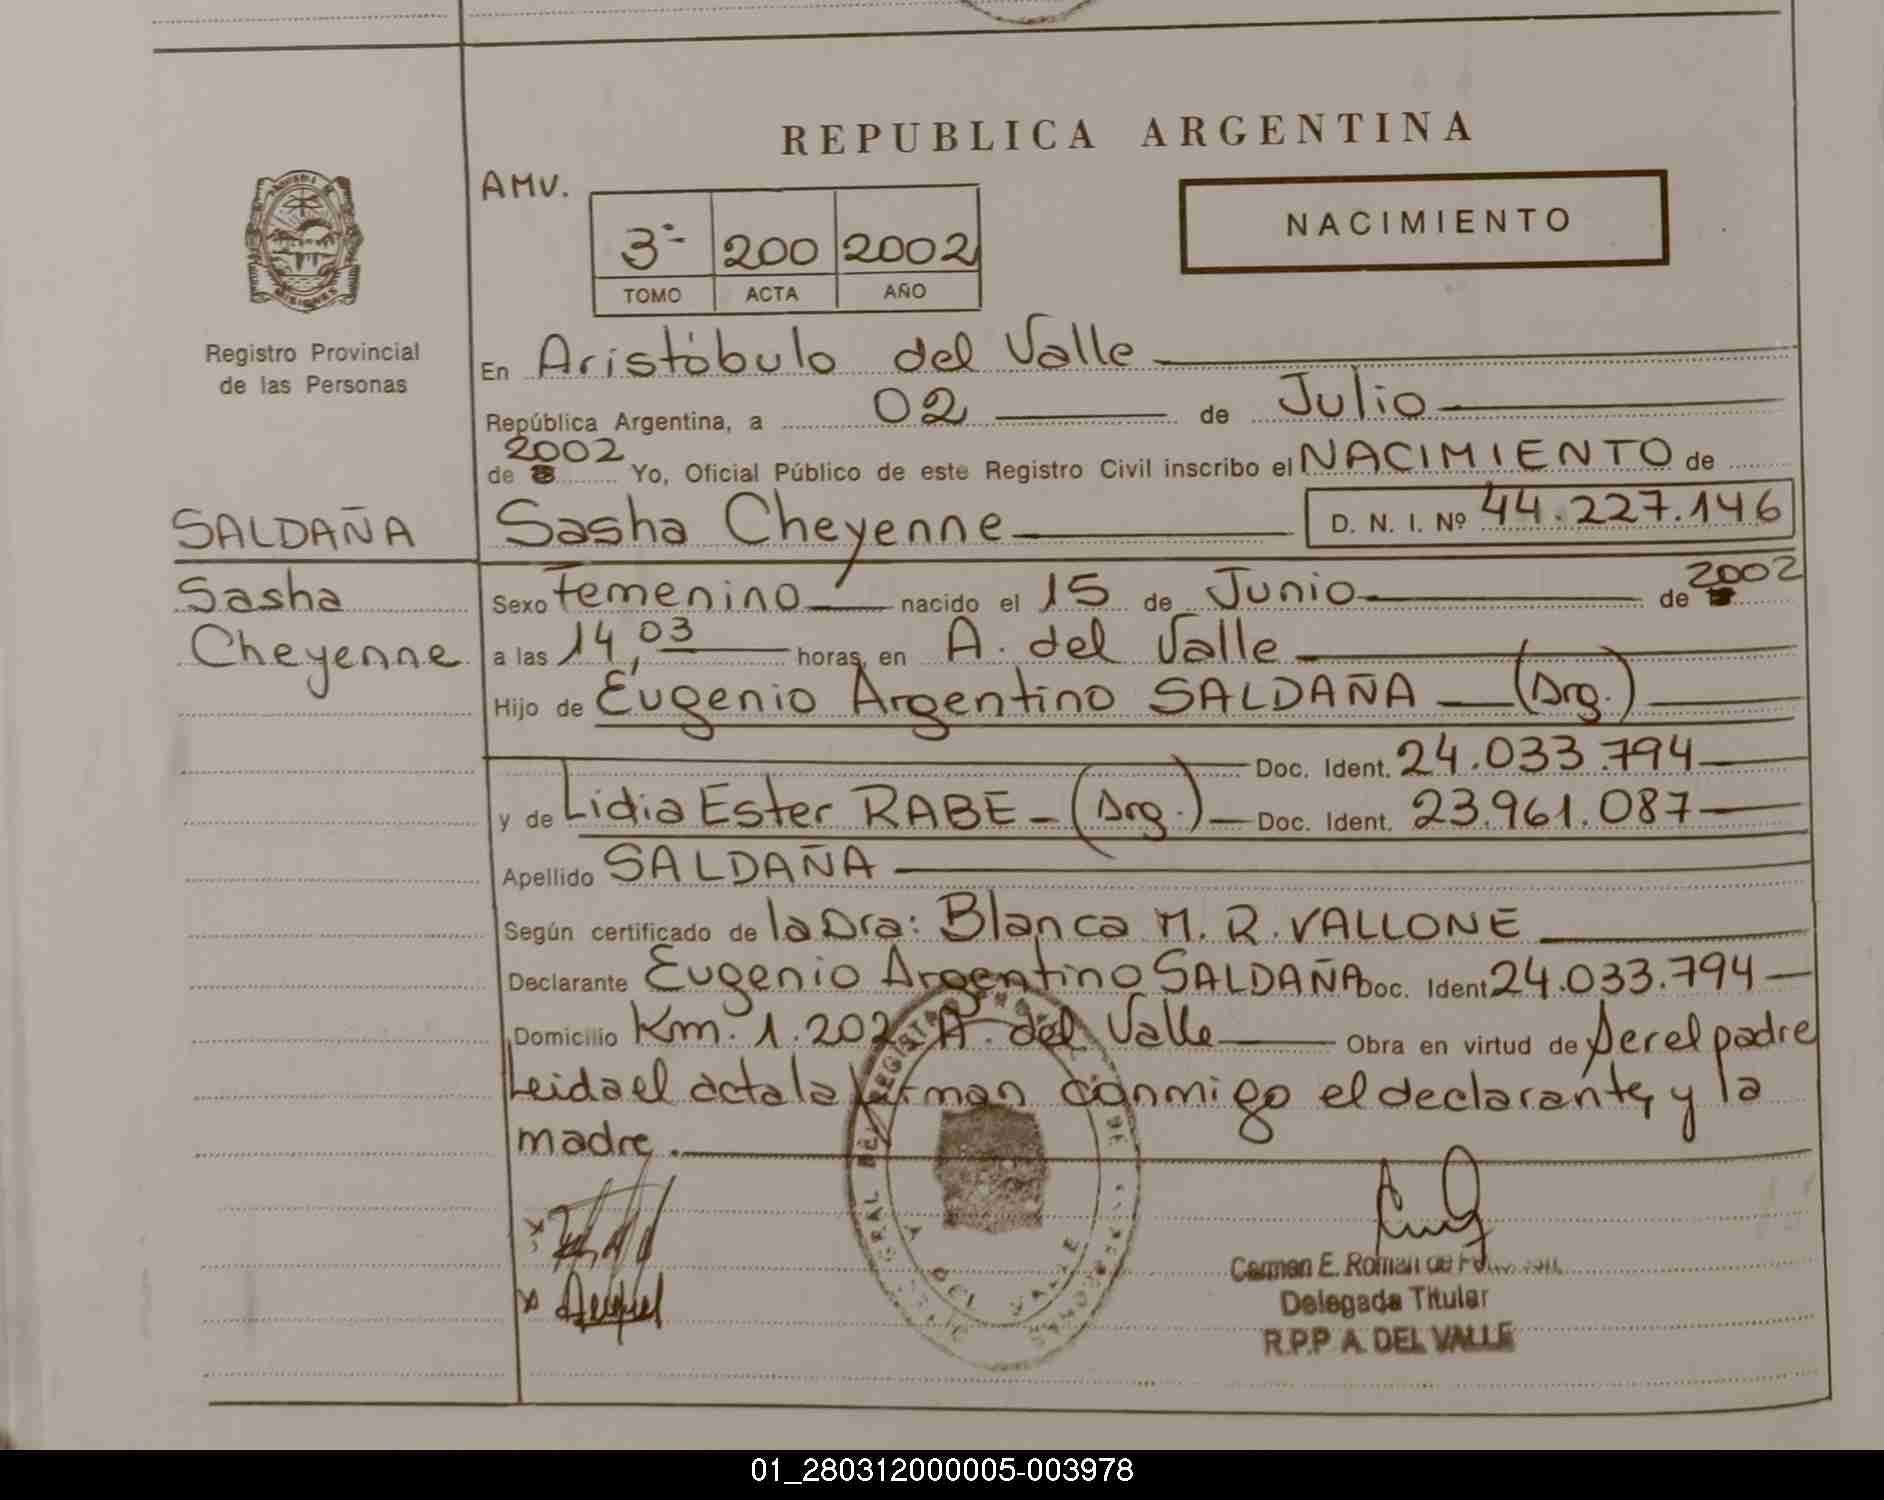 REPUBLICA ARGENTINA
AMV.
NACIMIENTO
3º 200 2002
TOMO ACTA AÑO
MISIONES
Registro Provincial
de las Personas
En Aristóbulo del Valle
República Argentina, a 02 de Julio
2002
de Yo, Oficial Público de este Registro Civil inscribo el NACIMIENTO de
SALDAÑA
Sasha Cheyenne D. N. I. Nº 44.227.146
Sasha
Cheyenne
Sexo Femenino nacido el 15 de Junio de 2002
a las 14,03 horas, en A. del Valle
Hijo de Eugenio Argentino SALDAÑA (Arg.)
Doc. Ident. 24.033.794
y de Lidia Ester RABE - (Arg.) Doc. Ident. 23.961.087
Apellido SALDAÑA
Según certificado de la Dra: Blanca M. R. VALLONE
Declarante Eugenio Argentino SALDAÑA Doc. Ident 24.033.794
Domicilio Km. 1.202 A. del Valle Obra en virtud de ser el padre
Leida el acta la firman conmigo el declarante, y la
madre.
A. DEL VALLE
Carmen E. Roman de
Delegada Titular
R.P.P A. DEL VALLE
01_280312000005-003978